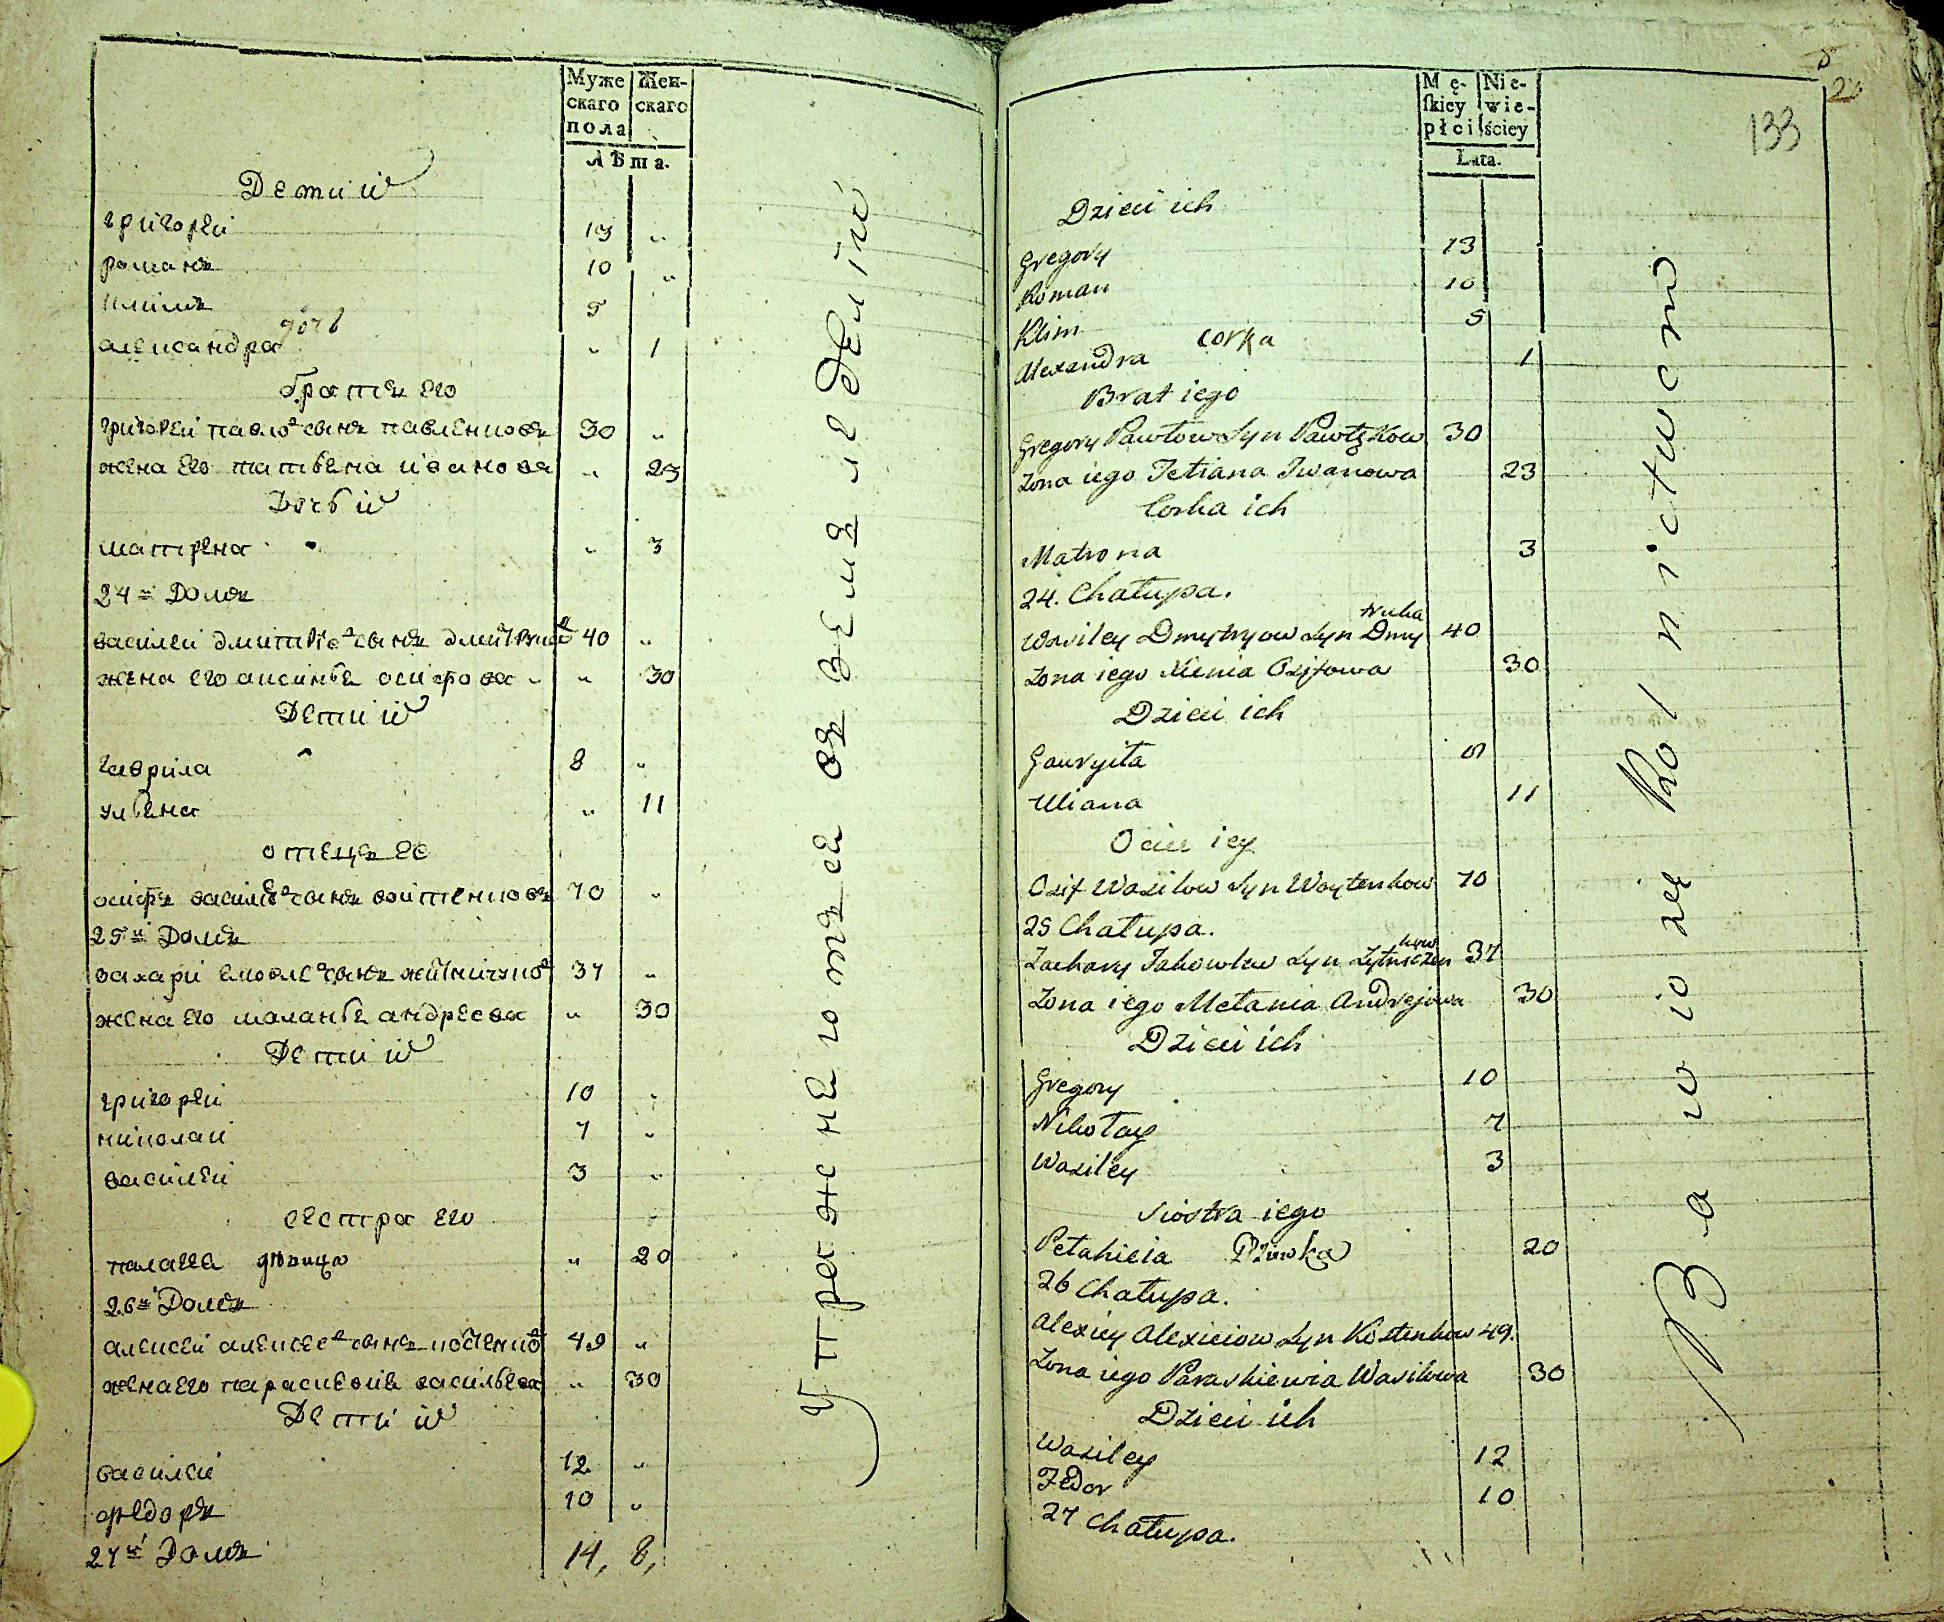 Муже
скаго
пола
Жен-
скаго
Лѣта.
Дети и^х
григореи
13 "
романъ
10 "
климъ
5
дочь
александра
" 1
братъ его
григореи павло^в сынъ павленковъ
30 "
жена его татьена иванова
" 23
Дочь и^х
матрена
" 3
24^й Домъ
василеи дмитрие^в сынъ
40 "
жена его аксинья осифова
" 30
Дети и^х
гаврила
8 "
ульена
" 11
отецъ ее
осифъ василье^в сынъ воитенковъ
70 "
25^й Домъ
захари
37 "
жена его маланья андреева
" 30
Дети и^х
григореи
10 "
николаи
7 "
василеи
3 "
сестра его
палагея девица
" 20
26^й Домъ
алексеи алексее^в сынъ костенко^в
49 "
жена его парасковия васильева
" 30
Дети и^х
василеи
12 "
федоръ
10 "
27^й Домъ
14, 8,
Упражнеютъся въ земледелiи
Mę-
ſkiey
płci
Nie-
wie-
ściey
Lata.
133
Dzieci ich
Gregory 13
Roman 10
Klim 5
corka
Alexandra 1
Brat iego
Gregory Pawłow Syn Pawlękow 30
Zona iego Tetiana Iwanowa 23
Corka ich
Matrona 3
24. Chałupa.
Wasiley Dmytryow Syn Dmytruha 40
Zona iego Xienia Osifowa 30
Dzieci ich
Gawryiła 8
Uliana 11
Ociec iey
Osif Wasilow Syn Woytenkow 70
25 Chałupa.
Zachary Jakowlew Syn Zytniczenkow 37
Zona iego Mełania Andrejowa 30
Dzieci ich
Gregory 10
Nikołay 7
Wasiley 3
Siostra iego
Pełahieia Dziwka 20
26 Chałupa.
Alexiey Alexieiow Syn Kostenkow 49.
Zona iego Paraskiewia Wasilowa 30
Dzieci ich
Wasiley 12
Fedor 10
27 Chałupa.
Bawio się Rolnictwem